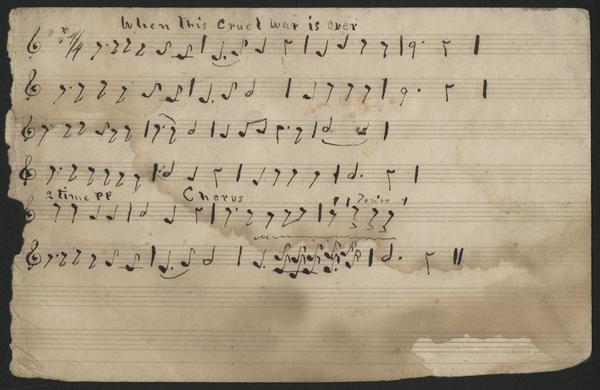 When this Cruel war is over
4/4
2 time PP Chorus